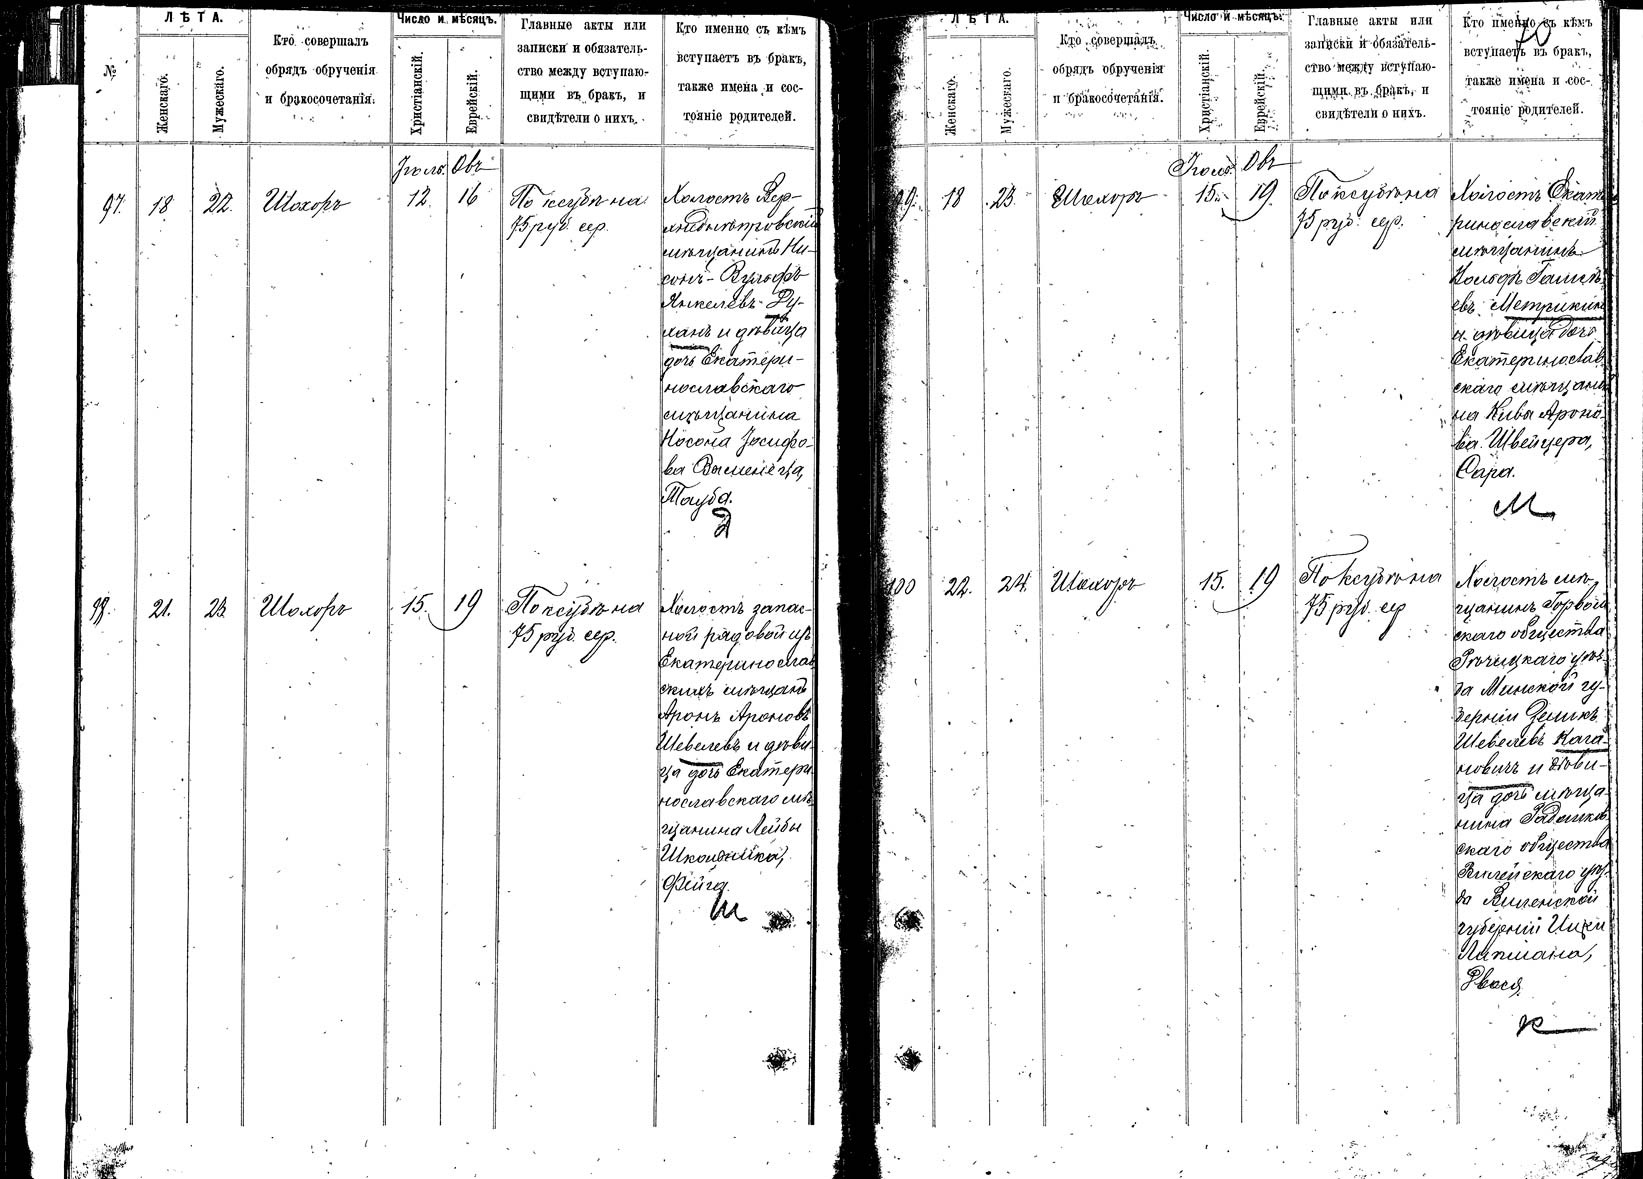 №
ЛѢТА.
Женскаго.
Мужескаго.
Кто совершалъ
обрядъ обрученія
и бракосочетанія.
Число и мѣсяцъ.
Христіанскій.
Еврейскій.
Главные акты или
записки и обязатель-
ство между вступаю-
щими въ бракъ, и
свидѣтели о нихъ.
Кто именно съ кѣмъ
вступаетъ въ бракъ,
также имена и сос-
тояніе родителей.
Іюль. Овъ
97. 18 22. Шохоръ 12. 16
По ксубѣ на
75 руб. сер.
Холостъ Вер-
хнеднѣпровскій
мѣщанинъ Ни-
сонъ-Вульфъ
Янкелевъ Ду-
ханъ и дѣвица
дочь Екатери-
нославскаго
мѣщанина
Носона Іосифо-
ва Выменеца,
Тауба.
Д
98. 21. 23. Шохоръ 15. 19
По ксубѣ на
75 руб. сер.
Холостъ запас-
ной рядовой изъ
Екатеринослав
скихъ мѣщанъ
Аронъ Ароновъ
Шевелевъ и дѣви-
ца дочь Екатери
нославскаго мѣ-
щанина Лейбы
Школьника,
Фейга.
Ш
70
ЛѢТА.
Женскаго.
Мужескаго.
Кто совершалъ
обрядъ обрученія
и бракосочетанія.
Число и мѣсяцъ.
Христіанскій.
Еврейскій.
Главные акты или
записки и обязатель-
ство между вступаю-
щими въ бракъ, и
свидѣтели о нихъ.
Кто именно съ кѣмъ
вступаетъ въ бракъ,
также имена и сос-
тояніе родителей.
Іюль. Овъ
99. 18 23. Шохоръ 15. 19.
По ксубѣ на
75 руб. сер.
Холостъ Екате
ринославскій
мѣщанинъ
Метрикинъ
и дѣвица дочь
Екатеринослав
скаго мѣщани
на Кивы Ароно-
ва Швейцера,
Сара.
М
100 22. 24. Шохоръ 15. 19
По ксубѣ на
75 руб. сер
Холостъ мѣ-
щанинъ
скаго общества
Рѣчицкаго уѣз-
да Минской гу-
берніи Зеликъ
Шевелевъ Кага-
новичъ и дѣви-
ца дочь мѣща-
нина Радошков
скаго общества
Вилейскаго уѣз-
да Виленской
губерніи Ицки
Липмана,
Двася.
К